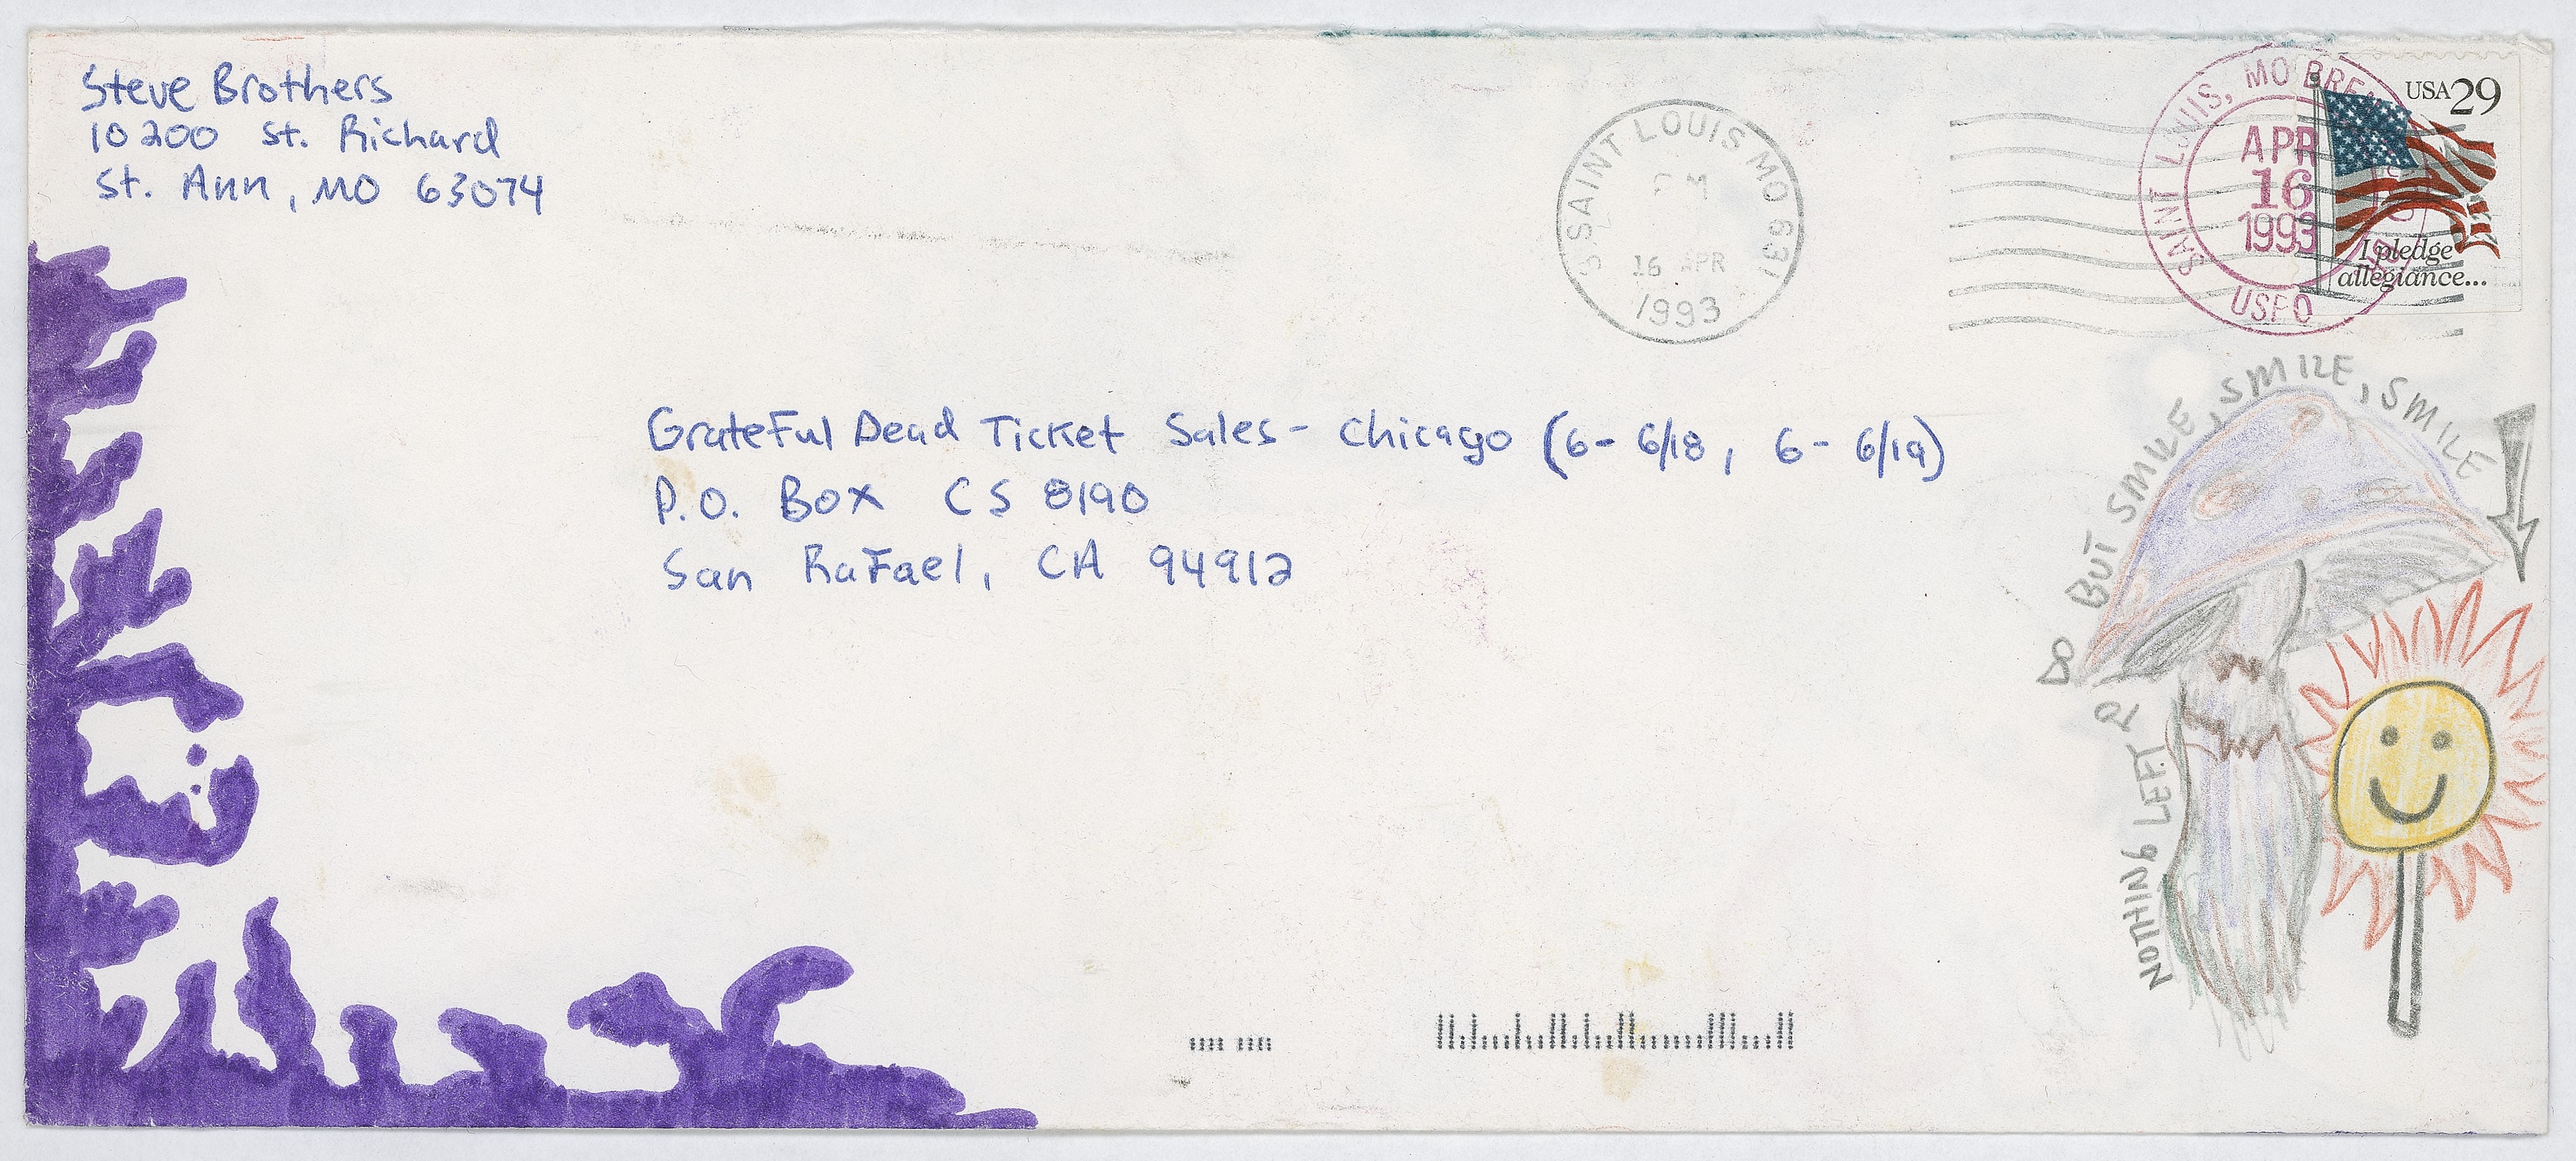 Steve Brothers
10200 St. Richard
St. Ann, MO 63074
SAINT LOUIS MO 631
PM
16 APR
1993
SAINT LOUIS, MO
APR
16
1993
USPO
USA 29
I pledge
allegiance...
Grateful Dead Ticket Sales - Chicago (6- 6/18, 6- 6/19)
P.O. Box CS 8190
San Rafael, CA 94912
NOTHING LEFT 2
DO BUT SMILE, SMILE, SMILE